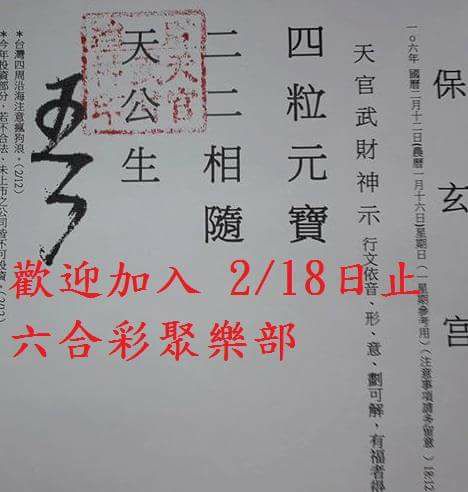 保玄宮
一○六年 國曆二月十二日(農曆一月十六日)星期日(一星期參考用)(注意事項請多留意)18:12
天官武財神示 行文依音、形、意、劃可解,有福者得
四粒元寶
二二相隨
天公生
*台灣四周沿海注意瘋狗浪。(2/12)
*今年投資部分,若不合法、未上市之公司皆不可投資。(2/12)
歡迎加入 2/18日止
六合彩聚樂部